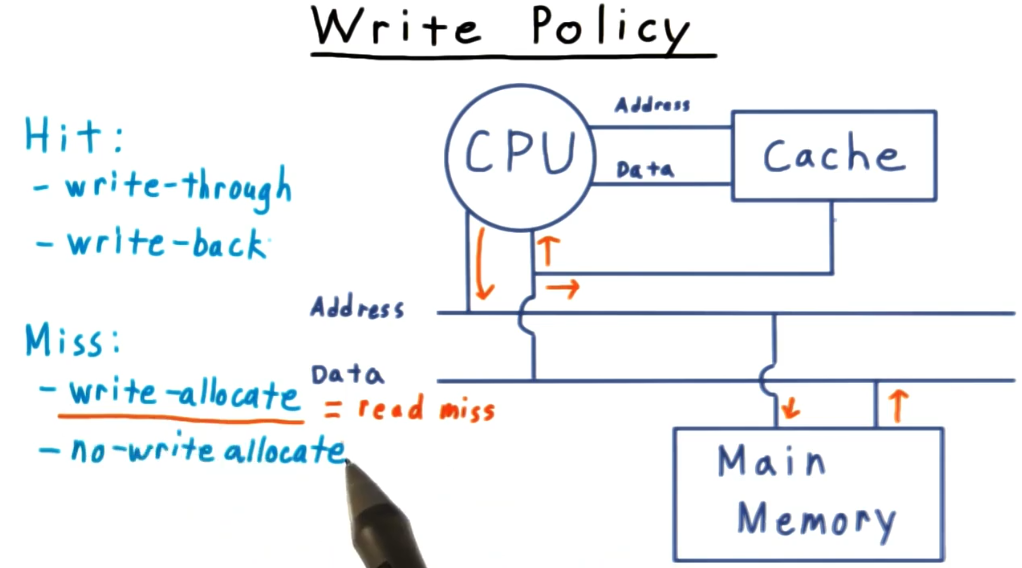 Write Policy
Hit:
- write-through
- write-back
Miss:
- write-allocate = read miss
- no-write allocate
CPU
Address
Data
Cache
Address
Data
Main
Memory